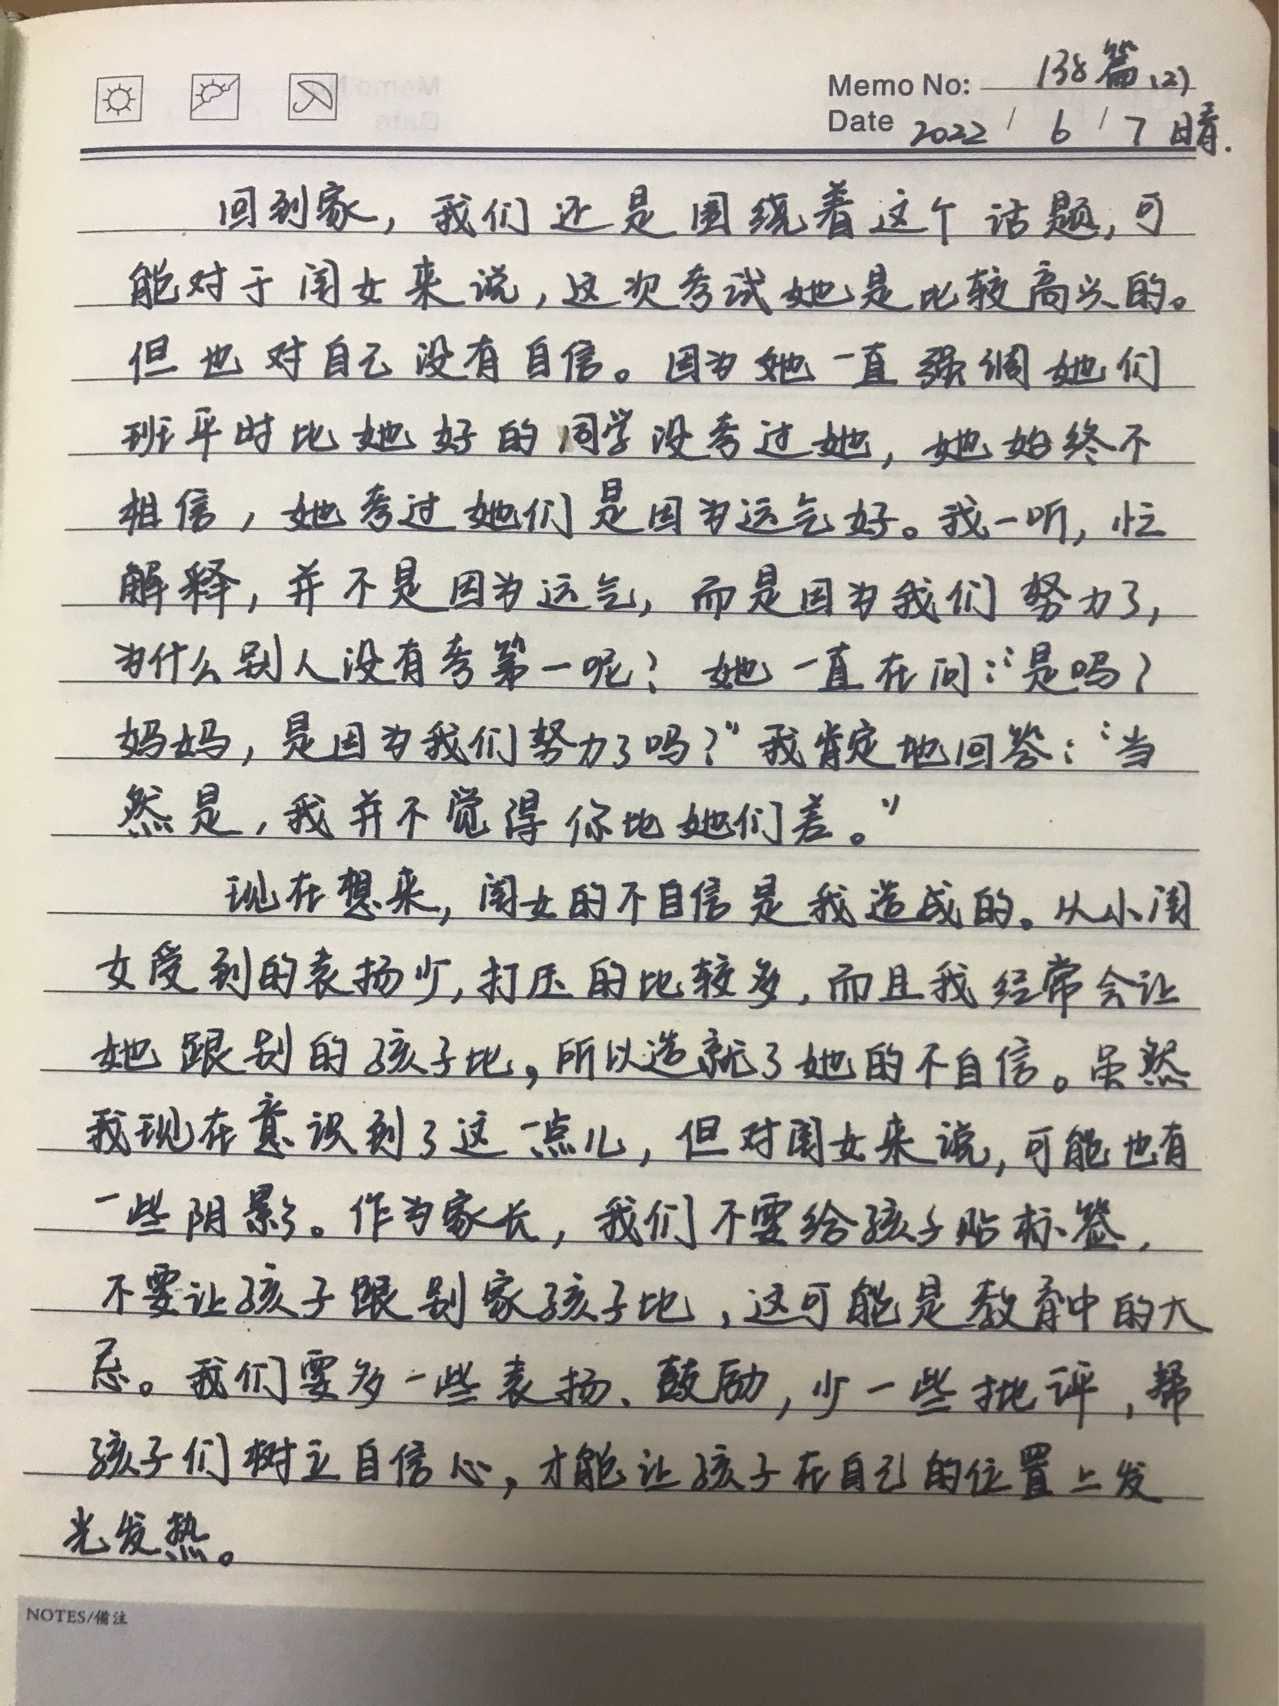 Memo No: 138篇(2)
Date 2022 / 6 / 7 晴.
回到家，我们还是围绕着这个话题，可
能对于闺女来说，这次考试她是比较高兴的。
但也对自己没有自信。因为她一直强调她们
班平时比她好的同学没考过她，她始终不
相信，她考过她们是因为运气好。我一听，忙
解释，并不是因为运气，而是因为我们努力了，
为什么别人没有考第一呢？她一直在问：“是吗？
妈妈，是因为我们努力了吗？”我肯定地回答：“当
然是，我并不觉得你比她们差。”
现在想来，闺女的不自信是我造成的。从小闺
女受到的表扬少，打压的比较多，而且我经常会让
她跟别的孩子比，所以造就了她的不自信。虽然
我现在意识到了这一点儿，但对闺女来说，可能也有
一些阴影。作为家长，我们不要给孩子贴标签，
不要让孩子跟别家孩子比，这可能是教育中的大
忌。我们要多一些表扬、鼓励，少一些批评，帮
孩子们树立自信心，才能让孩子在自己的位置上发
光发热。
NOTES/備注